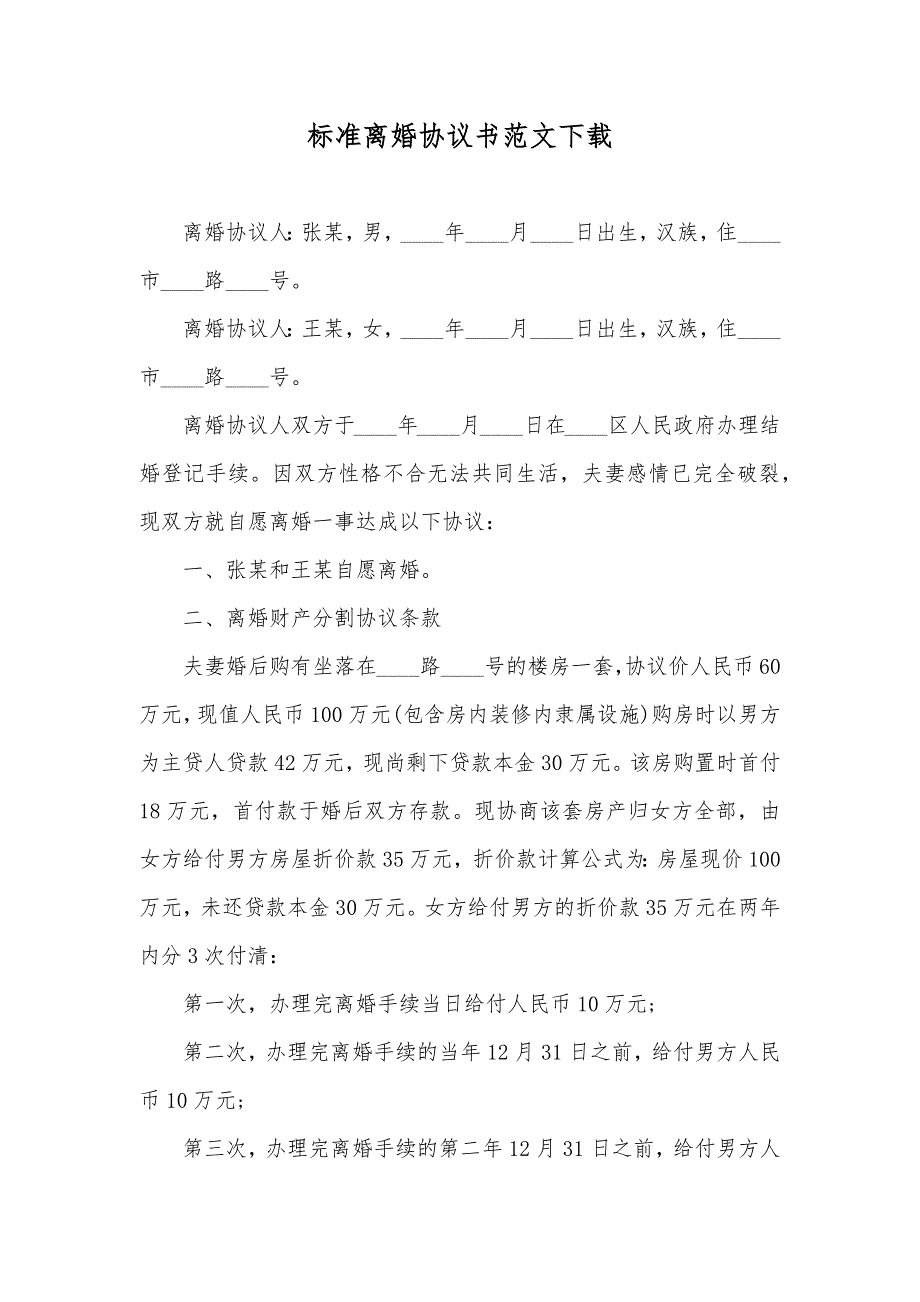 标准离婚协议书范文下载
离婚协议人：张某，男，____年____月____日出生，汉族，住____
市____路____号。
离婚协议人：王某，女，____年____月____日出生，汉族，住____
市____路____号。
离婚协议人双方于____年____月____日在____区人民政府办理结
婚登记手续。因双方性格不合无法共同生活，夫妻感情已完全破裂，
现双方就自愿离婚一事达成以下协议：
一、张某和王某自愿离婚。
二、离婚财产分割协议条款
夫妻婚后购有坐落在____路____号的楼房一套，协议价人民币 60
万元，现值人民币 100 万元(包含房内装修内隶属设施)购房时以男方
为主贷人贷款 42 万元，现尚剩下贷款本金 30 万元。该房购置时首付
18 万元，首付款于婚后双方存款。现协商该套房产归女方全部，由
女方给付男方房屋折价款 35 万元，折价款计算公式为：房屋现价 100
万元，未还贷款本金 30 万元。女方给付男方的折价款 35 万元在两年
内分 3 次付清：
第一次，办理完离婚手续当日给付人民币 10 万元;
第二次，办理完离婚手续的当年 12 月 31 日之前，给付男方人民
币 10 万元;
第三次，办理完离婚手续的第二年 12 月 31 日之前，给付男方人